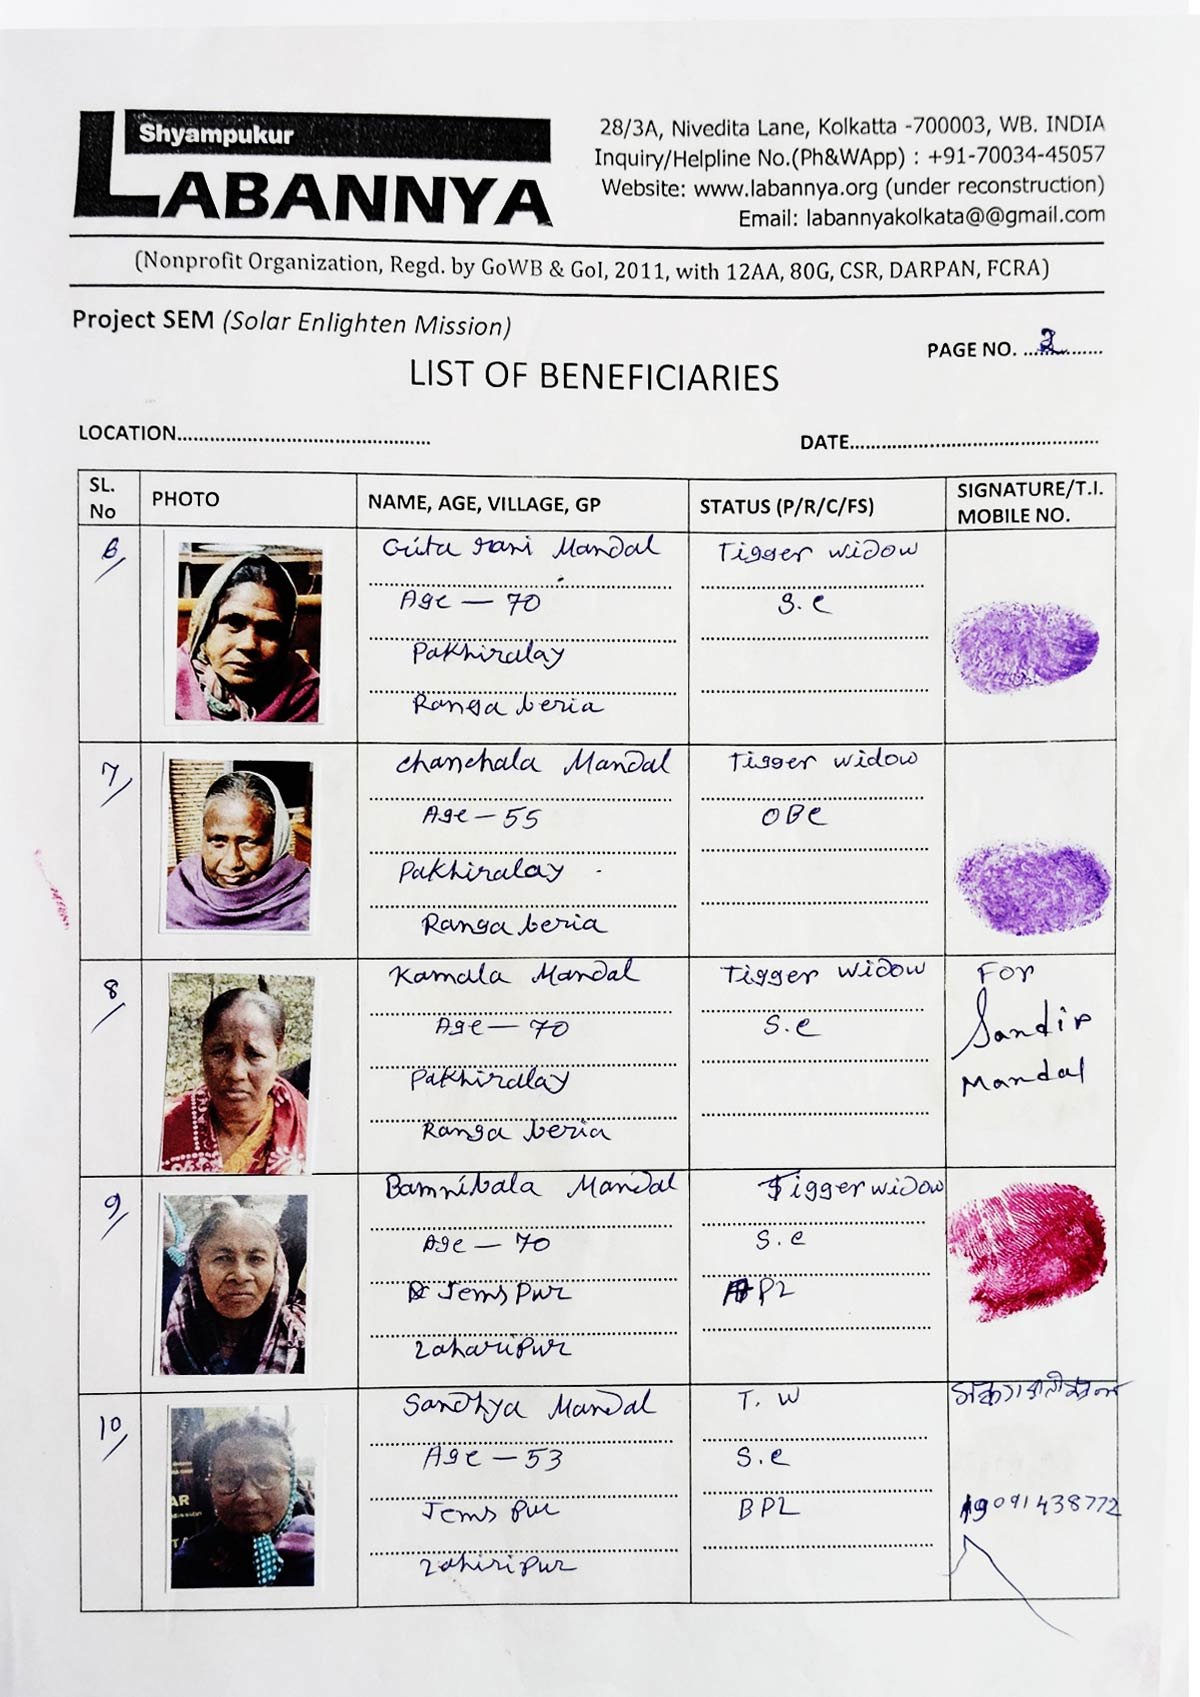 Shyampukur
LABANNYA
28/3A, Nivedita Lane, Kolkatta -700003, WB. INDIA
Inquiry/Helpline No.(Ph&WApp) : +91-70034-45057
Website: www.labannya.org (under reconstruction)
Email: labannyakolkata@@gmail.com
(Nonprofit Organization, Regd. by GoWB & GoI, 2011, with 12AA, 80G, CSR, DARPAN, FCRA)
Project SEM (Solar Enlighten Mission)
PAGE NO. ..............
LIST OF BENEFICIARIES
LOCATION................................................
DATE...............................................
SL. No PHOTO NAME, AGE, VILLAGE, GP STATUS (P/R/C/FS) SIGNATURE/T.I. MOBILE NO.
6/ Gita rani Mandal Tigger widow
Age — 70 S.C
Pakhiralay
Ranga beria
7/ Chanchala Mandal Tigger widow
Age — 55 OBC
Pakhiralay
Ranga beria
8/ Kamala Mandal Tigger widow For
Age — 70 S.C Sandip
Pakhiralay Mandal
Ranga beria
9/ Bamnibala Mandal Tigger widow
Age — 70 S.C
Jems Pur PL
Laharipur
10/ Sandhya Mandal T. W
Age — 53 S.C
Jems Pur BPL 9091438772
Lahiripur